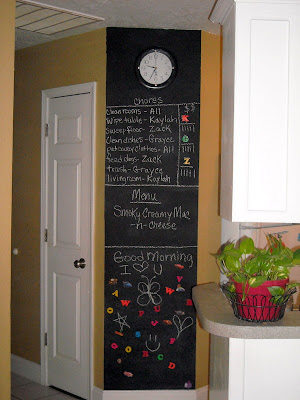 Chores
Clean rooms - All $$
Wipe table - Kaylah
Sweep floor - Zack
Clean dches - Grayce
put away clothes - All
feed dogs - Zack Z
trash - Grayce
living room - Kaylah
Menu
Smoky Creamy Mac
-n- Cheese
Good Morning
I U